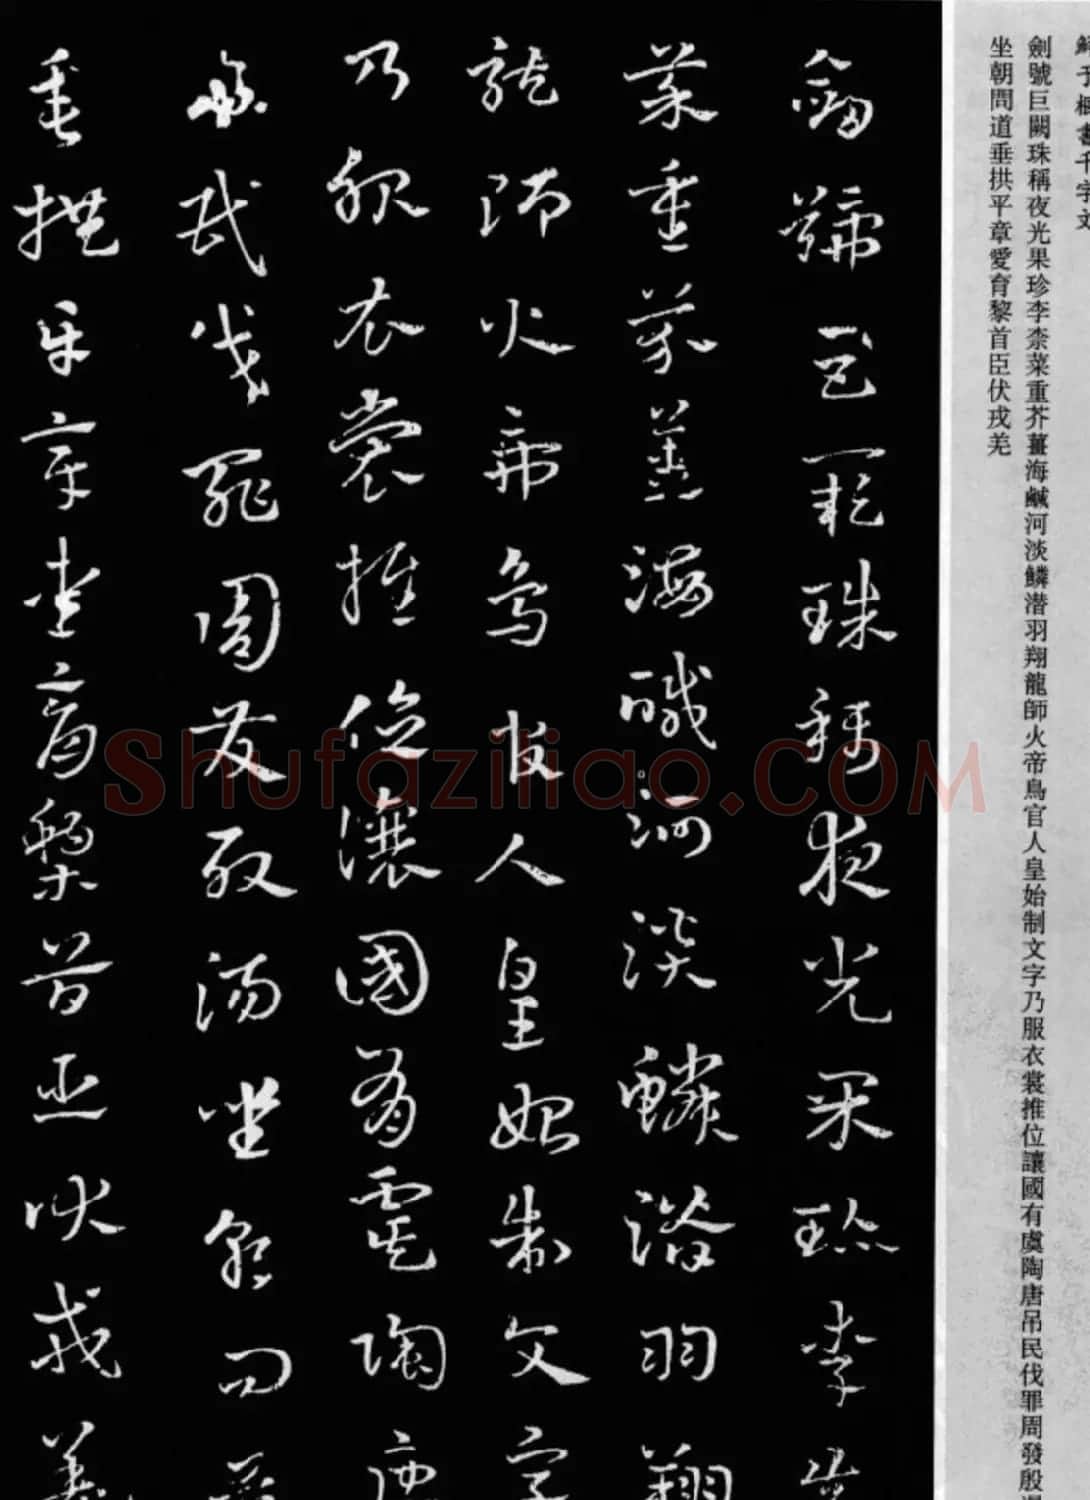 鮮于樞書千字文
劍號巨闕珠稱夜光果珍李柰菜重芥薑海鹹河淡鱗潛羽翔龍師火帝鳥官人皇始制文字乃服衣裳推位讓國有虞陶唐吊民伐罪周發殷湯
坐朝問道垂拱平章愛育黎首臣伏戎羌
劍號巨闕珠稱夜光果珍李柰
菜重芥薑海鹹河淡鱗潛羽翔
龍師火帝鳥官人皇始制文字
乃服衣裳推位讓國有虞陶唐
吊民伐罪周發殷湯坐朝問道
垂拱平章愛育黎首臣伏戎羌
Shufaziliao.COM